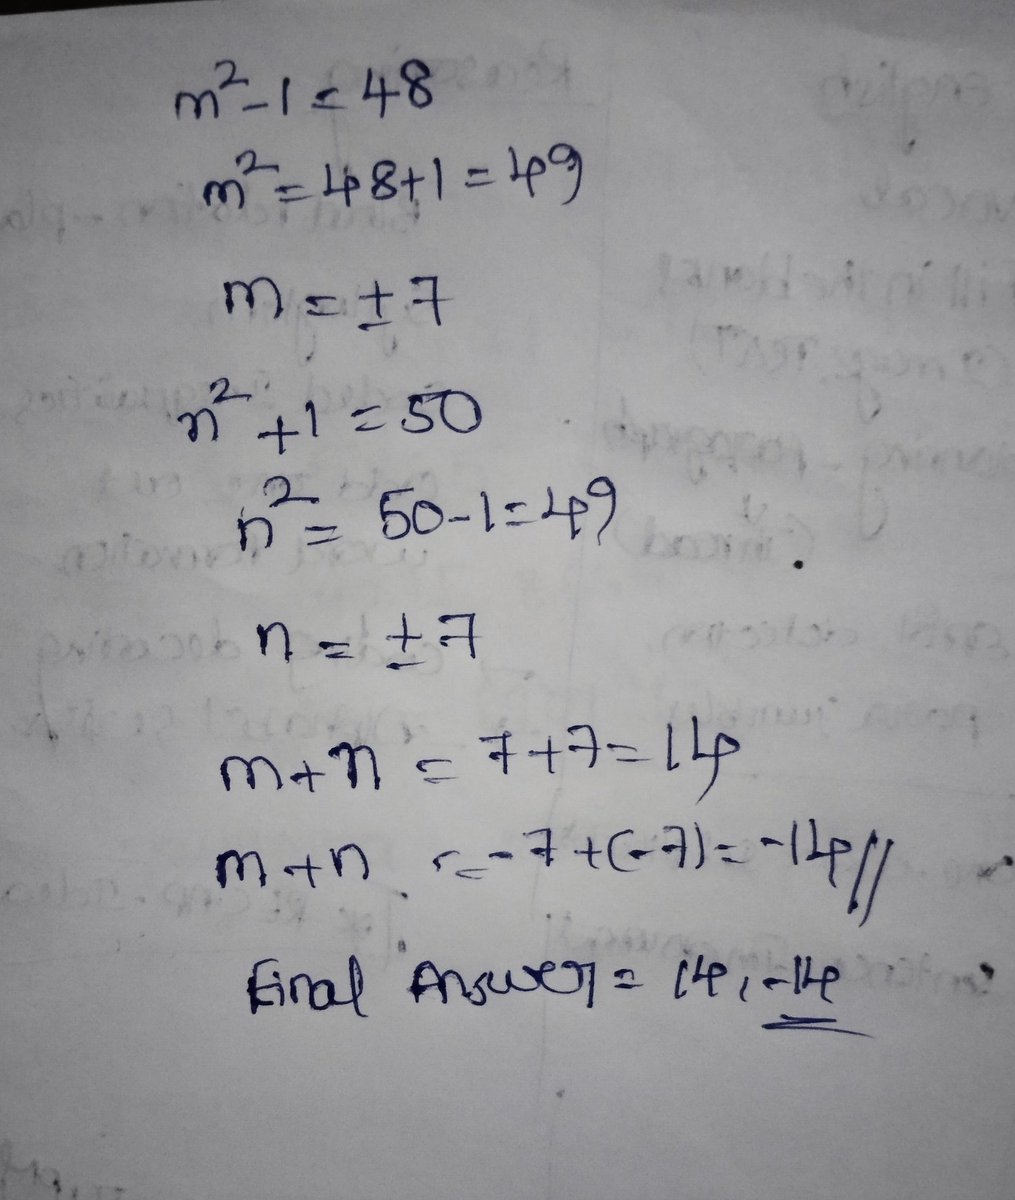 m²-1 = 48
m² = 48+1 = 49
m = ±7
n²+1 = 50
n² = 50-1 = 49
n = ±7
m+n = 7+7 = 14
m+n = -7+(-7) = -14//
Final Answer = 14, -14